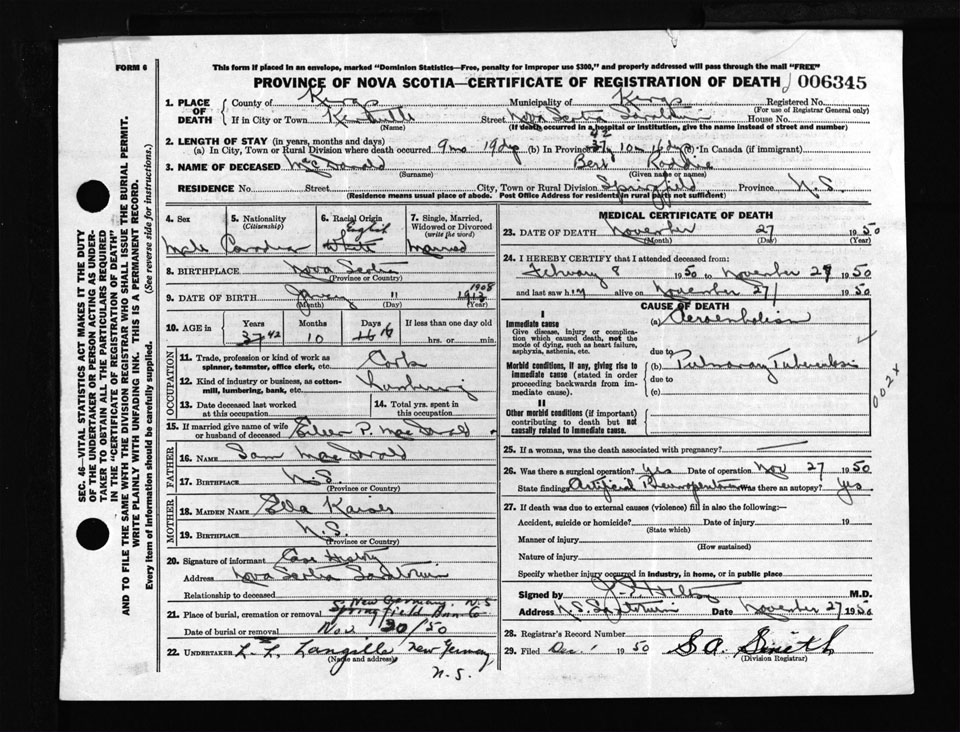 FORM 6
This form if placed in an envelope, marked "Dominion Statistics—Free, penalty for improper use $300," and properly addressed will pass through the mail "FREE"
PROVINCE OF NOVA SCOTIA—CERTIFICATE OF REGISTRATION OF DEATH 006345
1. PLACE OF DEATH
County of Kings Municipality of Kings Registered No.
(For use of Registrar General only)
If in City or Town Kentville Street Nova Scotia Sanatorium House No.
(Name) (If death occurred in a hospital or institution, give the name instead of street and number)
2. LENGTH OF STAY (in years, months and days)
(a) In City, Town or Rural Division where death occurred 9 mo 19 dy (b) In Province 37 42 10 m 16 dy (c) In Canada (if immigrant)
3. NAME OF DECEASED MacDonald Bert
(Surname) (Given name or names)
RESIDENCE No. Street City, Town or Rural Division Springfield Province N.S.
(Residence means usual place of abode. Post Office Address for residents in rural parts not sufficient)
SEC. 46—VITAL STATISTICS ACT MAKES IT THE DUTY
OF THE UNDERTAKER OR PERSON ACTING AS UNDER-
TAKER TO OBTAIN ALL THE PARTICULARS REQUIRED
IN THE "CERTIFICATE OF REGISTRATION OF DEATH"
AND TO FILE THE SAME WITH THE DIVISION REGISTRAR WHO SHALL ISSUE THE BURIAL PERMIT.
WRITE PLAINLY WITH UNFADING INK. THIS IS A PERMANENT RECORD.
Every item of information should be carefully supplied. (See reverse side for instructions.)
4. Sex
Male
5. Nationality
(Citizenship)
Canadian
6. Racial Origin
English
White
7. Single, Married, Widowed or Divorced
(write the word)
Married
8. BIRTHPLACE Nova Scotia
(Province or Country)
9. DATE OF BIRTH January 11 1913 1908
(Month) (Day) (Year)
10. AGE in Years Months Days If less than one day old
37 42 10 16 16 hrs. or min.
OCCUPATION
11. Trade, profession or kind of work as spinner, teamster, office clerk, etc. Cook
12. Kind of industry or business, as cotton-mill, lumbering, bank, etc. Lumbering
13. Date deceased last worked at this occupation
14. Total yrs. spent in this occupation
15. If married give name of wife or husband of deceased Eileen P. MacDonald
FATHER
16. NAME Sam MacDonald
17. BIRTHPLACE N.S.
(Province or Country)
MOTHER
18. MAIDEN NAME Ella Kaiser
19. BIRTHPLACE N.S.
(Province or Country)
20. Signature of informant Case History
Address Nova Scotia Sanatorium
Relationship to deceased
21. Place of burial, cremation or removal New Germany N.S
Springfield
Date of burial or removal Nov. 30/50
22. UNDERTAKER L. L. Langille New Germany
(Name and address)
N.S.
MEDICAL CERTIFICATE OF DEATH
23. DATE OF DEATH November 27 1950
(Month) (Day) (Year)
24. I HEREBY CERTIFY that I attended deceased from:
February 8 1950 to November 27 1950
and last saw him alive on November 27 1950
CAUSE OF DEATH
I
Immediate cause
Give disease, injury or complication which caused death, not the mode of dying, such as heart failure, asphyxia, asthenia, etc.
(a) Aeroembolism
due to
Morbid conditions, if any, giving rise to immediate cause (stated in order proceeding backwards from immediate cause).
(b) Pulmonary Tuberculosis
due to
(c)
II
Other morbid conditions (if important) contributing to death but not causally related to immediate cause.
002x
25. If a woman, was the death associated with pregnancy?
26. Was there a surgical operation? Yes Date of operation Nov 27 1950
State findings Artificial Pneumoperitoneum Was there an autopsy? Yes
27. If death was due to external causes (violence) fill in also the following:—
Accident, suicide or homicide? Date of injury 19
(State which)
Manner of injury
(How sustained)
Nature of injury
Specify whether injury occurred in industry, in home, or in public place
Signed by Hiltz M.D.
Address N.S. Sanatorium Date November 27 1950
28. Registrar's Record Number
29. Filed Dec. 1 1950 S.A. Smith
(Division Registrar)